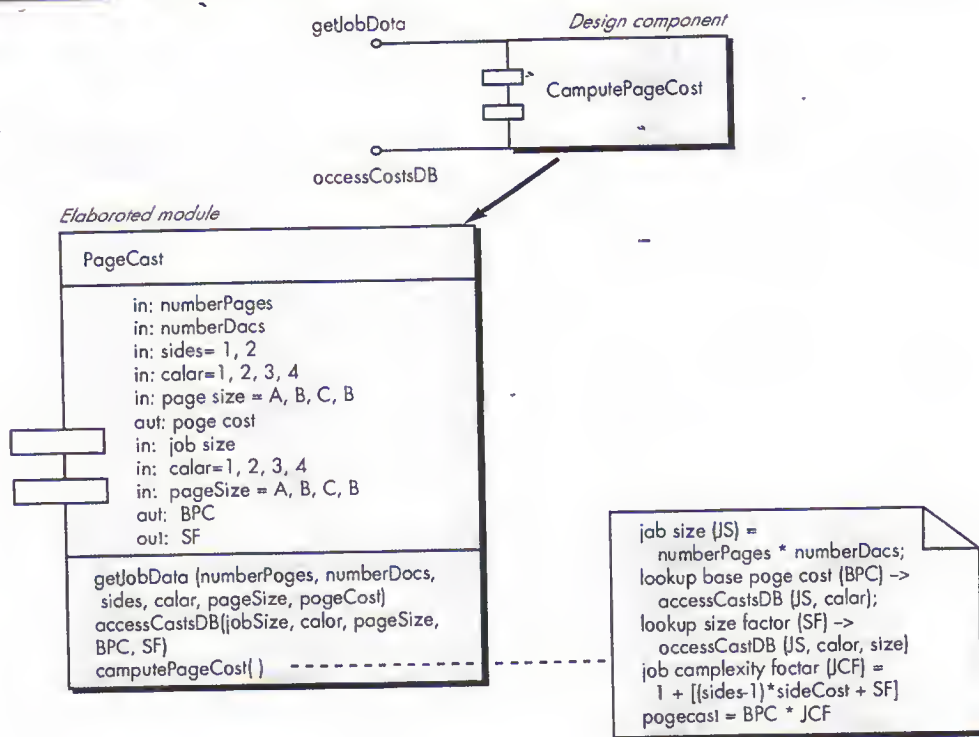 getJobDota
Design component
CamputePageCost
occessCostsDB
Elaboroted module
PageCast
in: numberPages
in: numberDacs
in: sides= 1, 2
in: calar=1, 2, 3, 4
in: page size = A, B, C, B
aut: poge cost
in: job size
in: calar=1, 2, 3, 4
in: pageSize = A, B, C, B
aut: BPC
out: SF
getJobData (numberPoges, numberDocs,
sides, calar, pageSize, pogeCost)
accessCastsDB(jobSize, calor, pageSize,
BPC, SF)
camputePageCost( )
jab size (JS) =
numberPages * numberDacs;
lookup base poge cost (BPC) ->
accessCastsDB (JS, calar);
lookup size factor (SF) ->
occessCastDB (JS, calor, size)
job camplexity foctar (JCF) =
1 + [(sides-1)*sideCost + SF]
pogecast = BPC * JCF